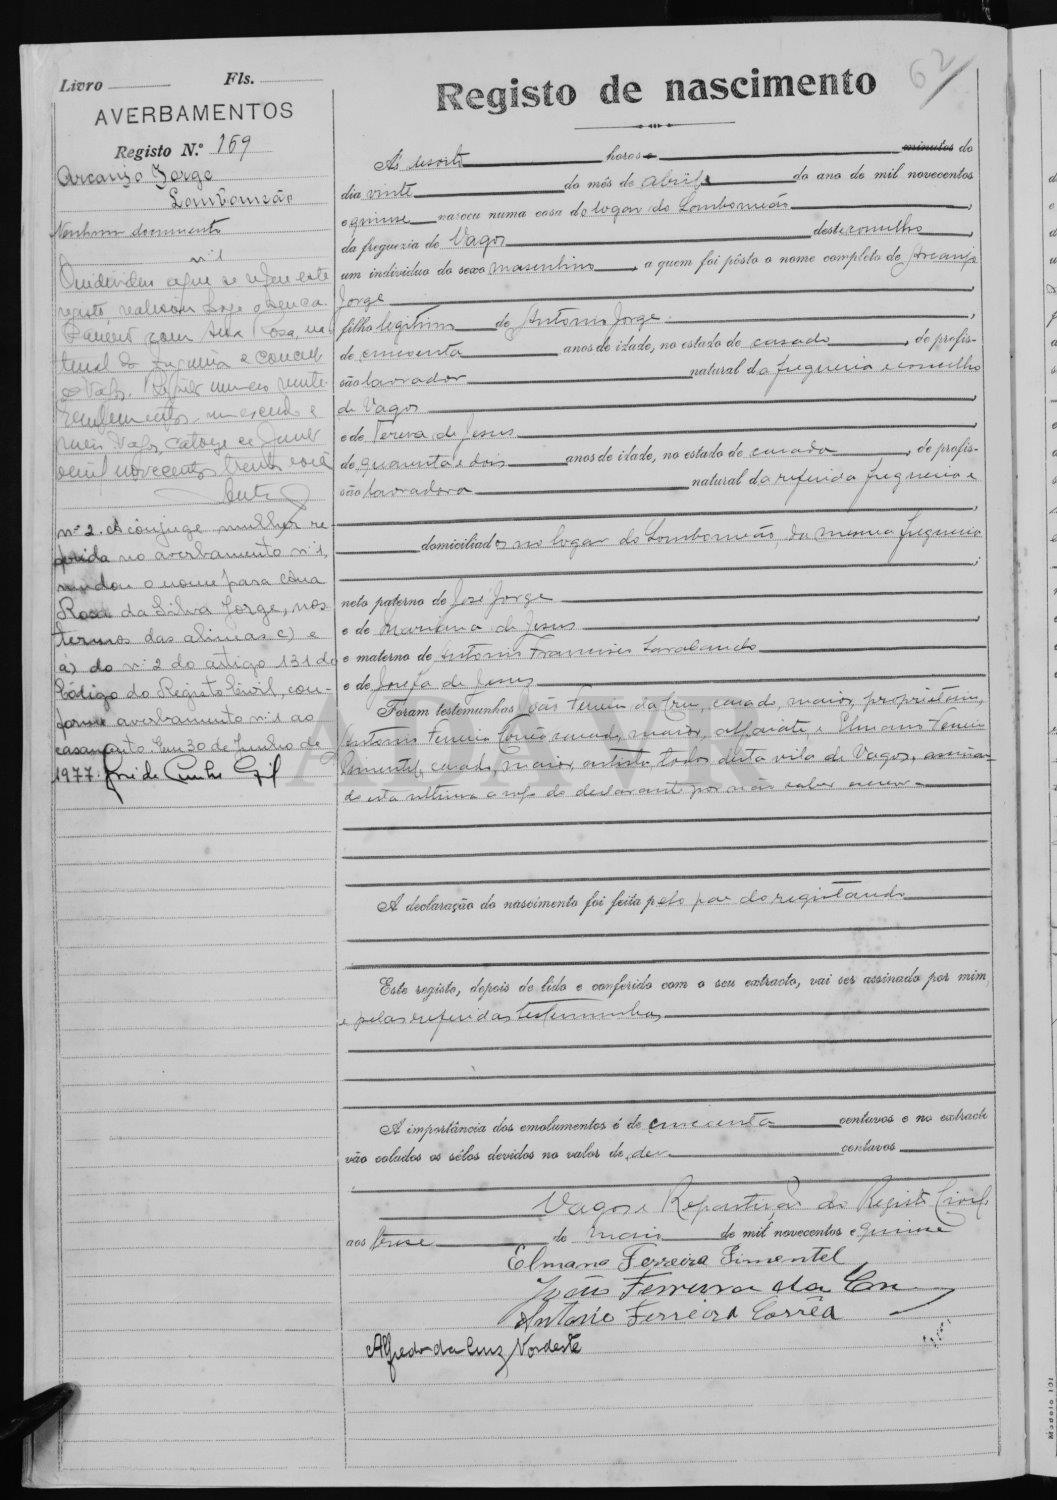 62
Livro Fls.
AVERBAMENTOS
Registo N.º 169
Arcanjo Jorge
Lombomeão
Nenhum documento
n.º 1
O individuo a que se refere este
registo realizou hoje o seu ca-
samento com Ana Rosa, na-
tural da freguesia e concelho
de Vagos.
Vagos, catorze de
de mil novecentos trinta e
n.º 2. A cônjuge mulher re-
ferida no averbamento n.º 1,
mudou o nome para Ana
Rosa da Silva Jorge, nos
termos das alineas c) e
a) do n.º 2 do artigo 131 do
Código do Registo Civil, con-
forme averbamento n.º 1 ao
casamento. Em 30 de Junho de
1977. José da Cunha Gil
Registo de nascimento
Ás horas minutos do
dia vinte do mês de abril do ano de mil novecentos
e quinze nasceu numa casa do logar do Lombomeão
da freguezia de Vagos deste concelho
um individuo do sexo masculino, a quem foi pôsto o nome completo de Arcanjo
Jorge
filho legitimo de Antonio Jorge
de cincoenta anos de idade, no estado de casado, de profis-
são lavrador natural da freguesia e concelho
de Vagos
e de Tereza de Jesus
de quarenta e dois anos de idade, no estado de casada, de profis-
são lavradora natural da referida freguesia e
domiciliados no logar do Lombomeão, da mesma freguesia
neto paterno de José Jorge
e de Mariana de Jesus
e materno de Antonio Francisco
e de Josefa de Jesus
Foram testemunhas João Ferreira da Cruz, casado, maior, proprietario,
Antonio Ferreira Corrêa casado, maior, alfaiate, e Elmano Ferreira
Pimentel, casado, maior, artista, todos desta vila de Vagos, assinan-
do esta ultima a rogo do declarante por não saber escrever
A declaração do nascimento foi feita pelo pae do registando
Este registo, depois de lido e conferido com o seu extracto, vai ser assinado por mim
e pelas referidas testemunhas
A importância dos emolumentos é de cincoenta centavos e no extracto
vão colados os sêlos devidos no valor de dez centavos
Vagos e Repartição do Registo Civil,
aos treze de maio de mil novecentos e quinze
Elmano Ferreira Pimentel
João Ferreira da Cruz
Antonio Ferreira Corrêa
Alfredo da Cruz Nordeste
Modelo 101